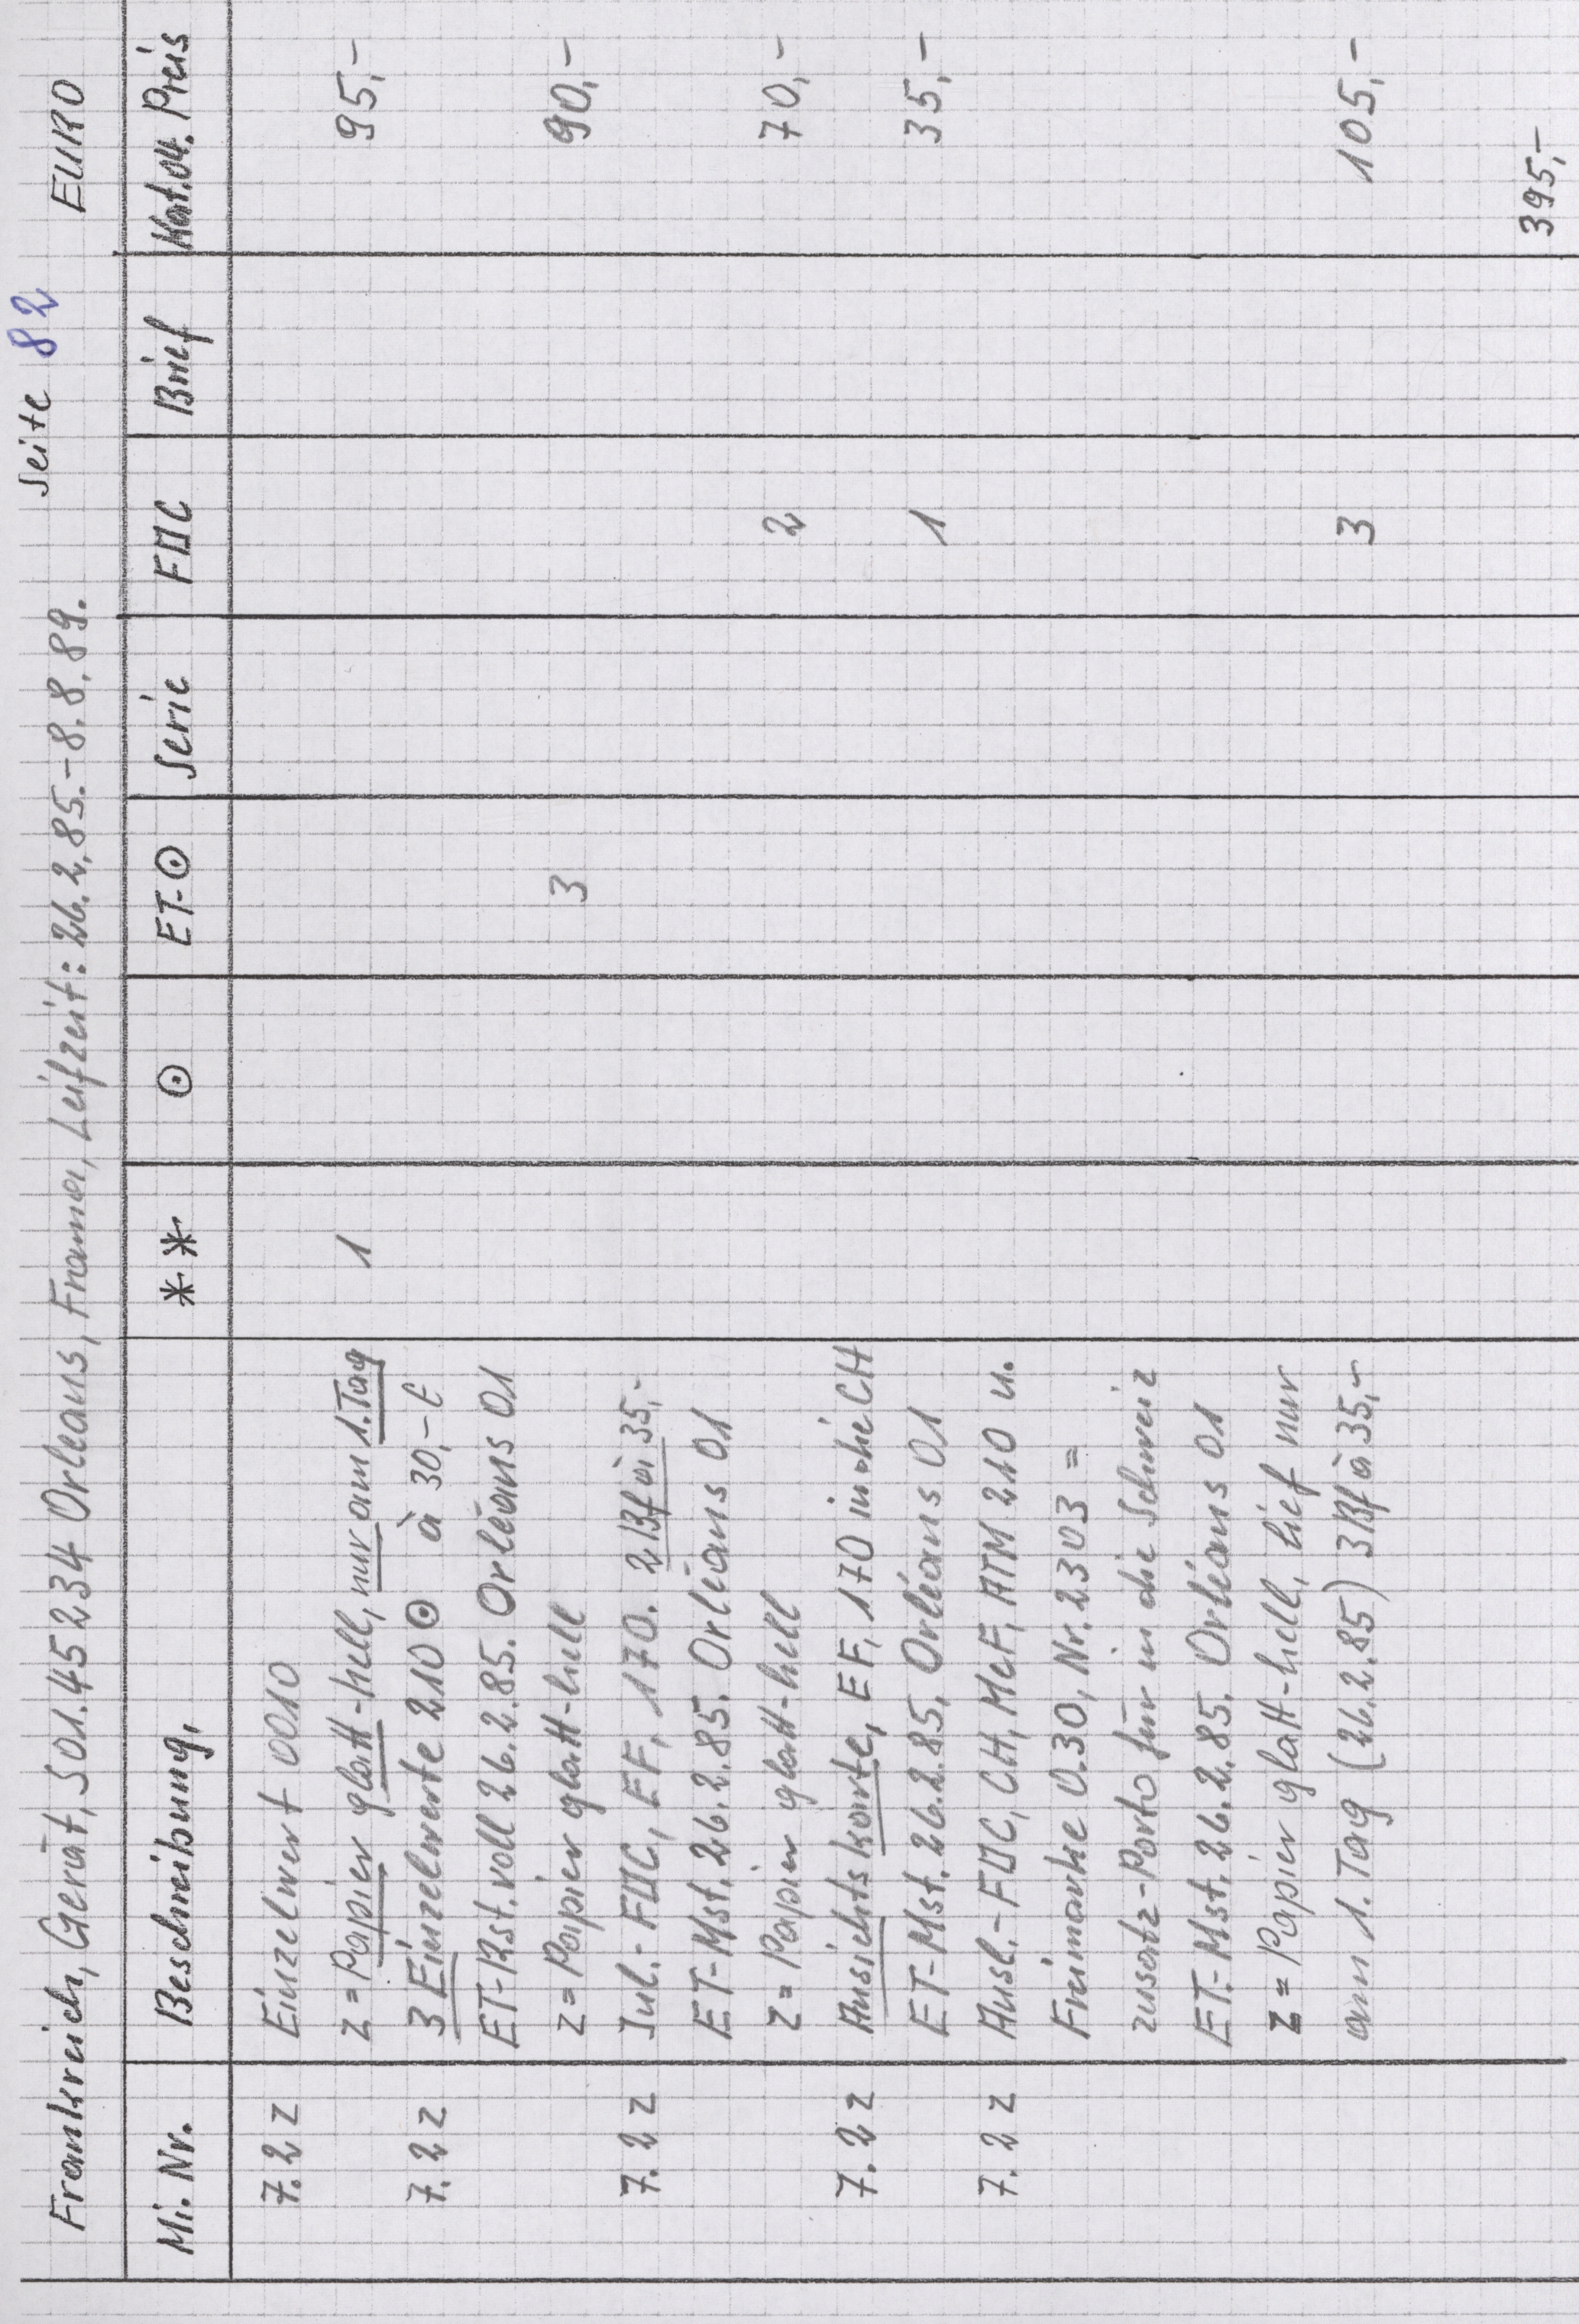 Seite 82
Frankreich, Gerät, 501.45234 Orleans, Frama, Leifzeit: 26.2.85.-8.8.89. EURO
Mi. Nr. Beschreibung, ** ⊙ ET-⊙ Serie FDC Brief Kat.04. Preis
7.2 z Einzelwert 0010
z = Papier glatt-hell, nur am 1. Tag 1 95,-
7.2 z 3 Einzelwerte 210 ⊙ à 30,- €
ET-Rst. voll 26.2.85. Orléans 01
z = Papier glatt-hell 3 90,-
7.2 z Inl.-FDC, EF, 170. 2 Bf à 35,-
ET-Mst. 26.2.85. Orléans 01
z = Papier glatt-hell 2 70,-
7.2 z Ansichtskarte, EF, 170 in die CH
ET-Mst. 26.2.85, Orléans 01 1 35,-
7.2 z Ausl.-FDC, CH, MeF, ATM 210 u.
Freimarke 0.30, Nr. 2303 =
zusatz-Porto für in die Schweiz
ET-Mst. 26.2.85. Orléans 01
z = Papier glatt-hell, lief nur
am 1. Tag (26.2.85) 3 Bf à 35,- 3 105,-
395,-